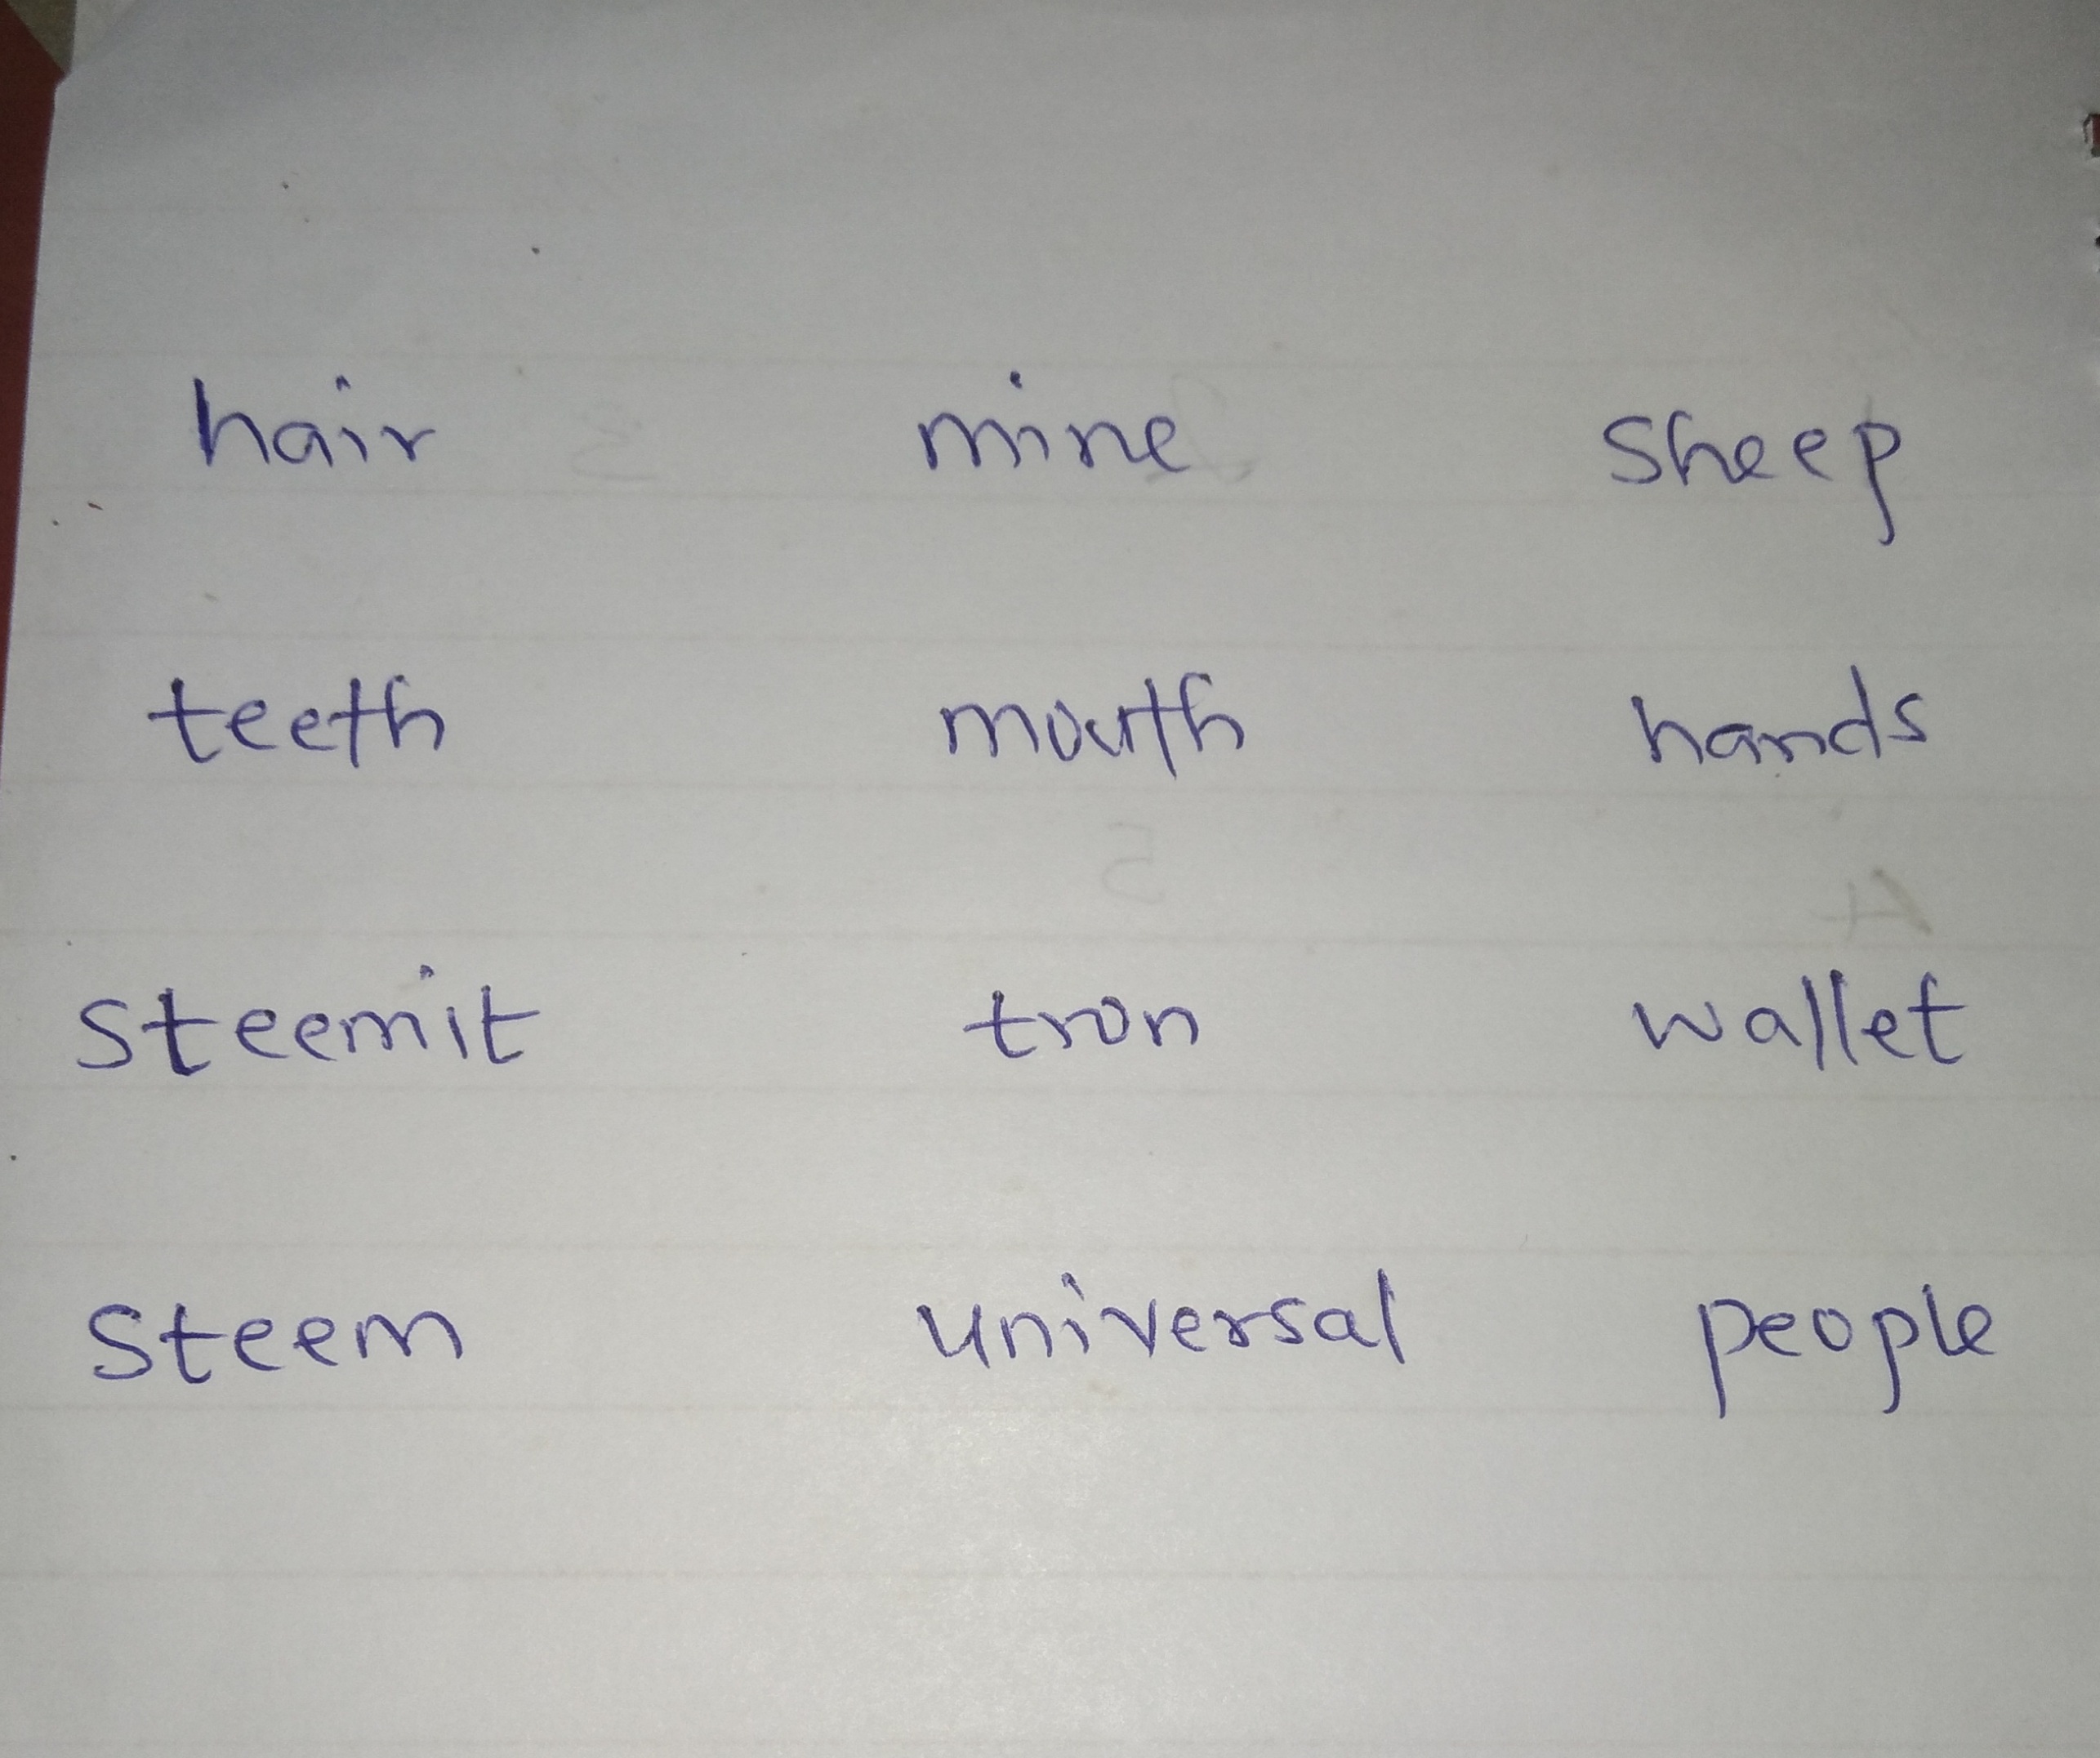 hair mine sheep
teeth mouth hands
steemit tron wallet
steem universal people